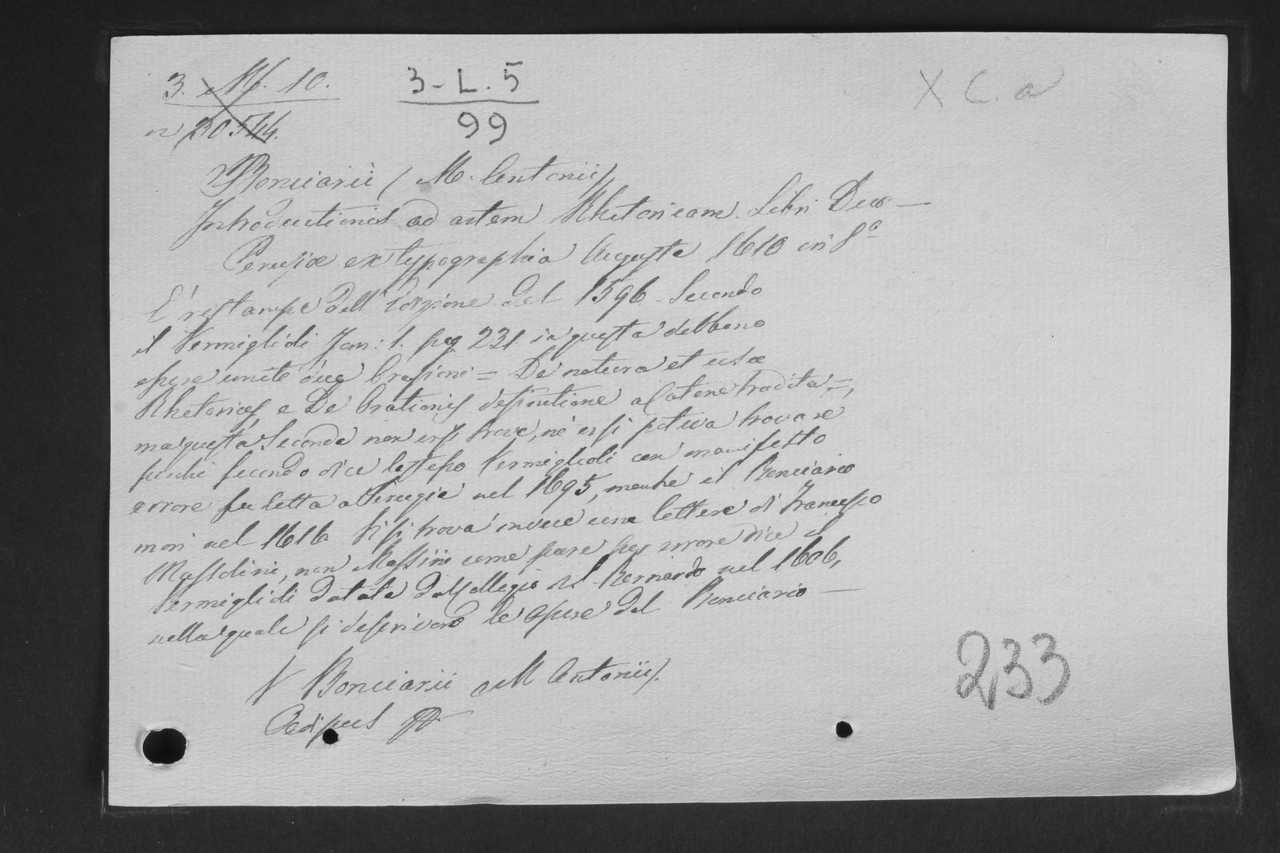 3. M. 10.
n 20544.
3-L.5
99
X C. a
Bonciarii (M. Antonii)
Introductionis ad artem Rhetoricam Libri Duo —
Perusiæ ex typographia Augusta 1610 in 8º
E' ristampa dell' edizione del 1596. Secondo
il Vermiglioli Tom: 1. pag 221 in questa debbono
essere unite due Orazioni = De natura et usu
Rhetorices e De Orationis definitione a Platone tradita =,
ma questa seconda non vi si trova, nè vi si poteva trovare
perchè secondo dice lo stesso Vermiglioli con manifesto
errore fu letta a Perugia nel 1695, mentre il Bonciario
morì nel 1616. Vi si trova invece una lettera di Francesco
Mastolini, non Massini come pare per errore dice il
Vermiglioli datata dal Collegio di S. Bernardo nel 1606,
nella quale si descrivono le opere del Bonciario —
V Bonciarii M Antonii).
Oedipus
233